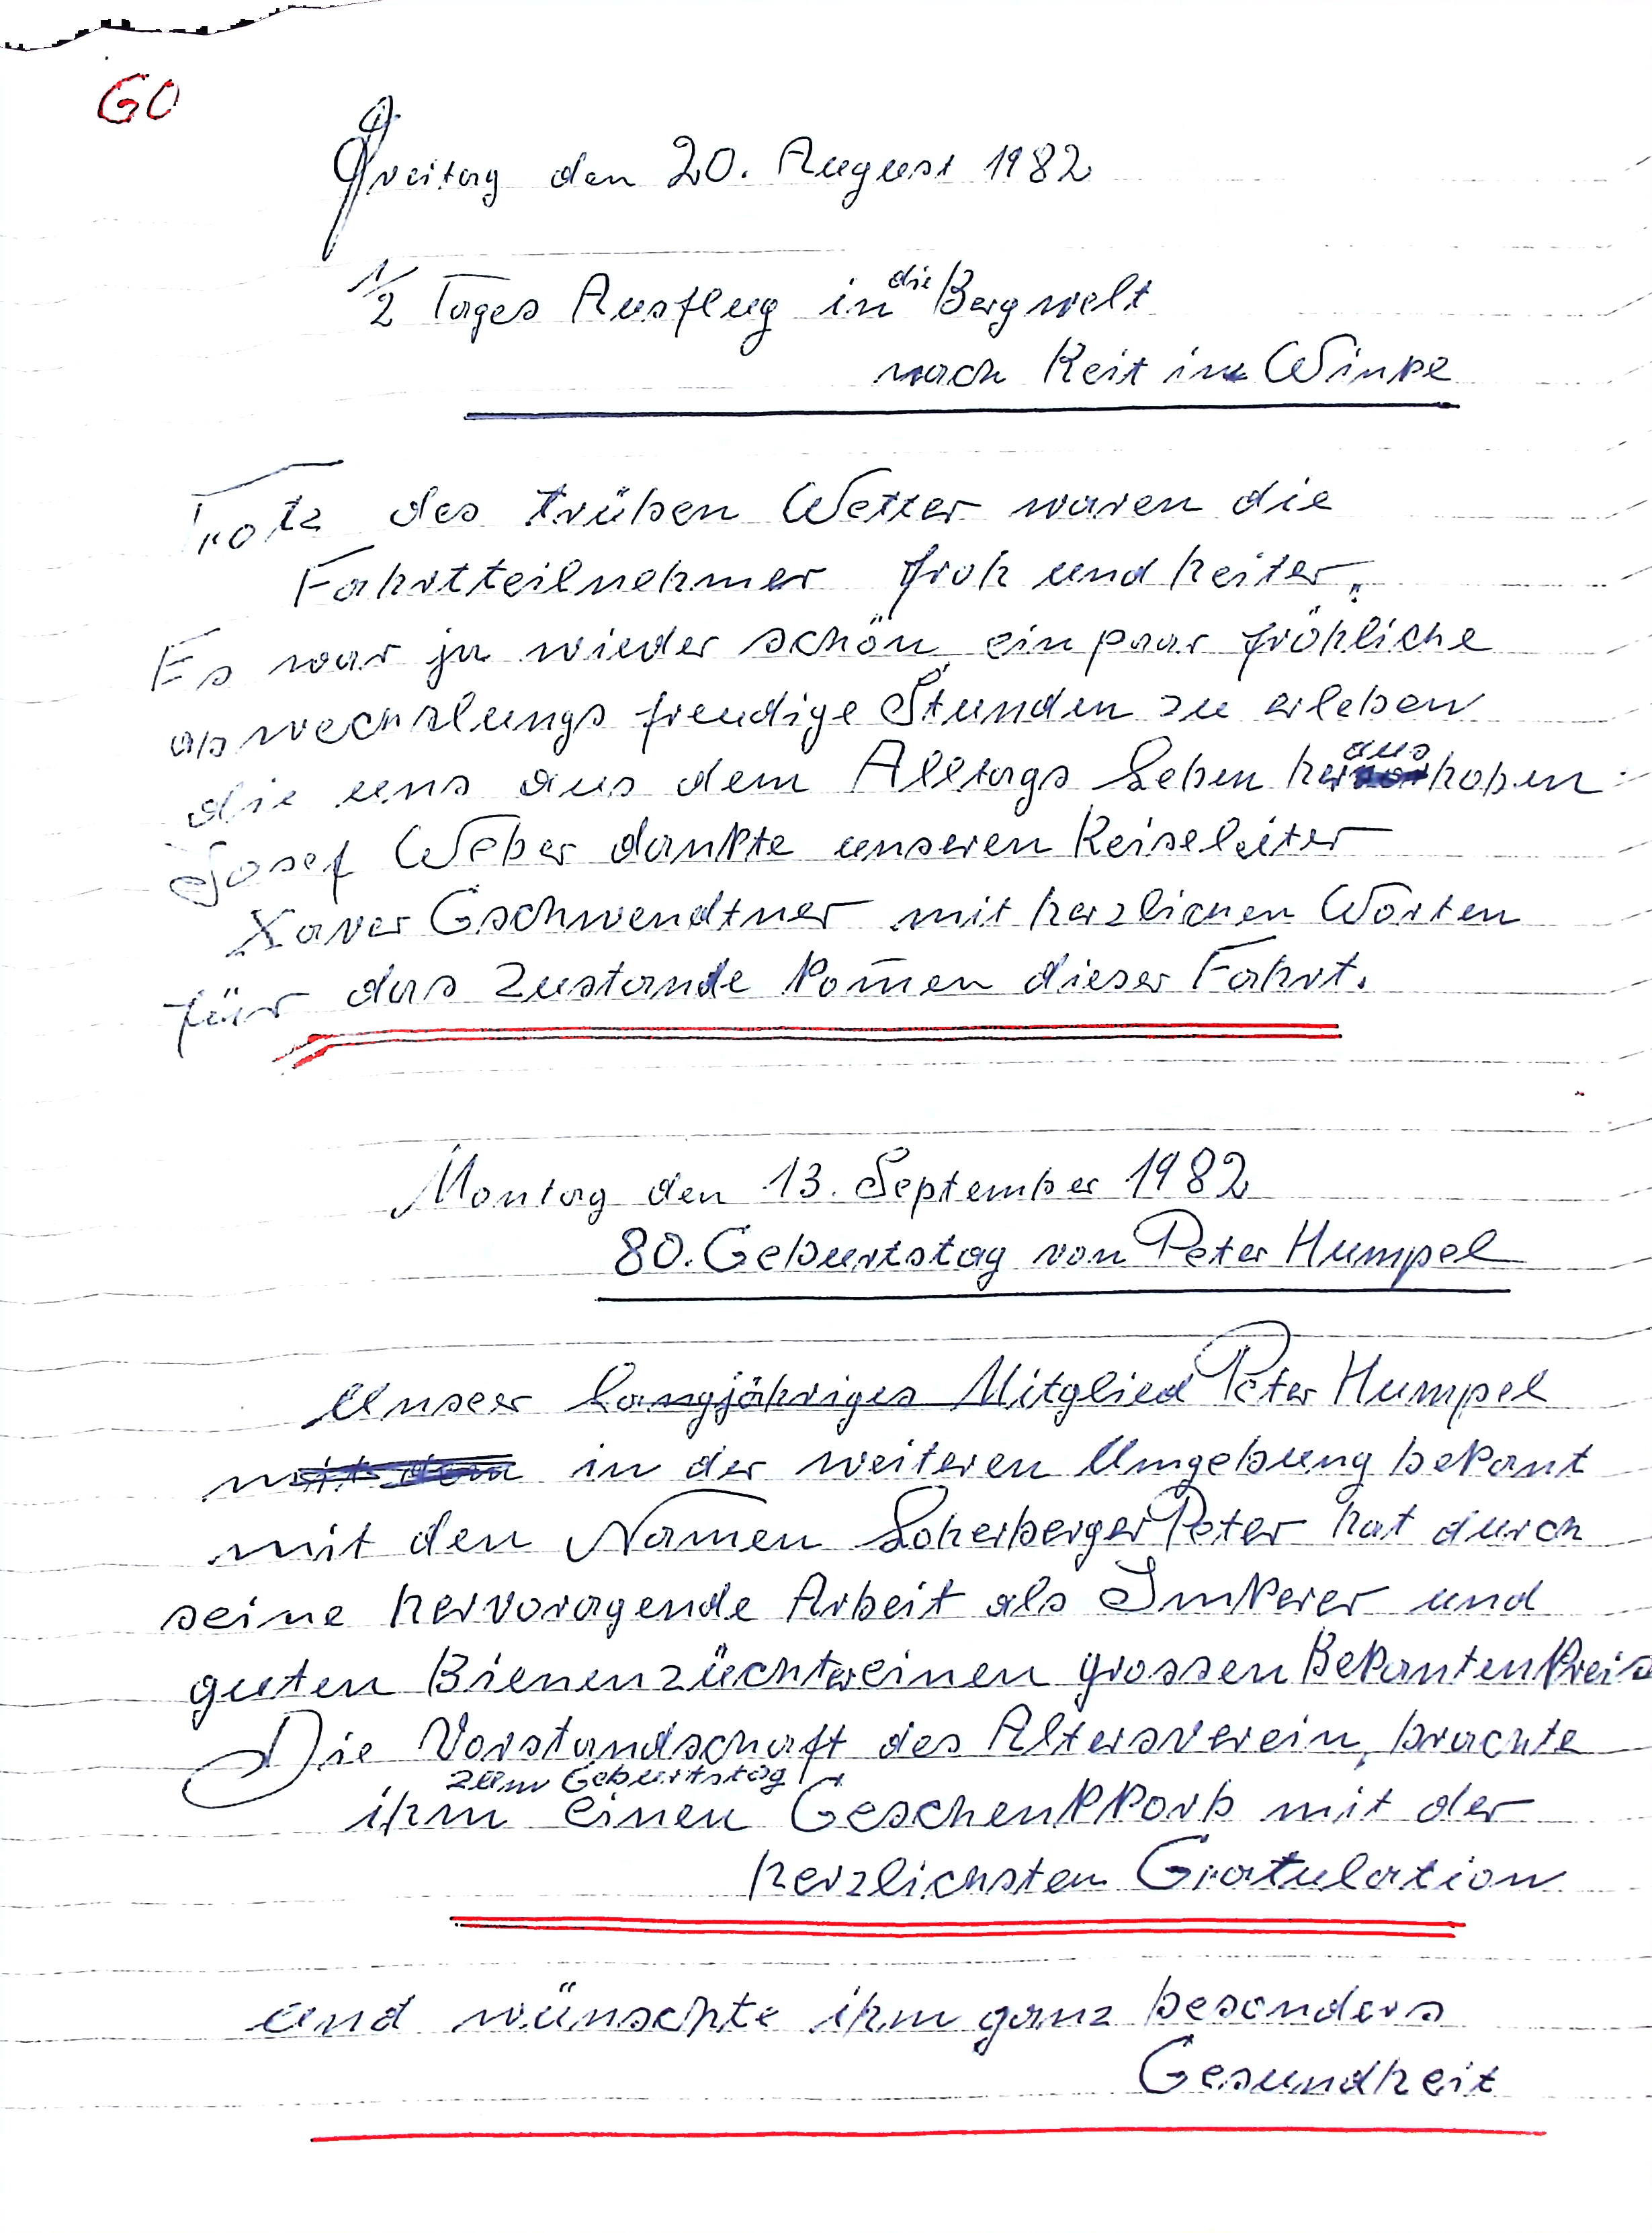 60
Freitag den 20. August 1982
1/2 Tages Ausflug in die Bergwelt
nach Reit im Winke
Trotz des trüben Wetter waren die
Fahrtteilnehmer froh und heiter.
Es war ja wieder schön, ein paar fröhliche
abwechslungs freudige Stunden zu erleben
die uns aus dem Alltags Leben heraushoben
Josef Weber dankte unseren Reiseleiter
Xaver Gschwendtner mit herzlichen Worten
für das zustande kom̄en dieser Fahrt.
Montag den 13. September 1982
80. Geburtstag von Peter Humpel
Unser langjähriges Mitglied Peter Humpel
mit dem in der weiteren Umgebung bekant
mit den Namen Loherberger Peter hat durch
seine hervoragende Arbeit als Imkerer und
guten Bienenzüchter einen grossen Bekantenkreis
Die Vorstandschaft des Altersverein, brachte
ihm zum Geburtstag einen Geschenkkorb mit der
herzlichsten Gratulation
und wünschte ihm ganz besonders
Gesundheit